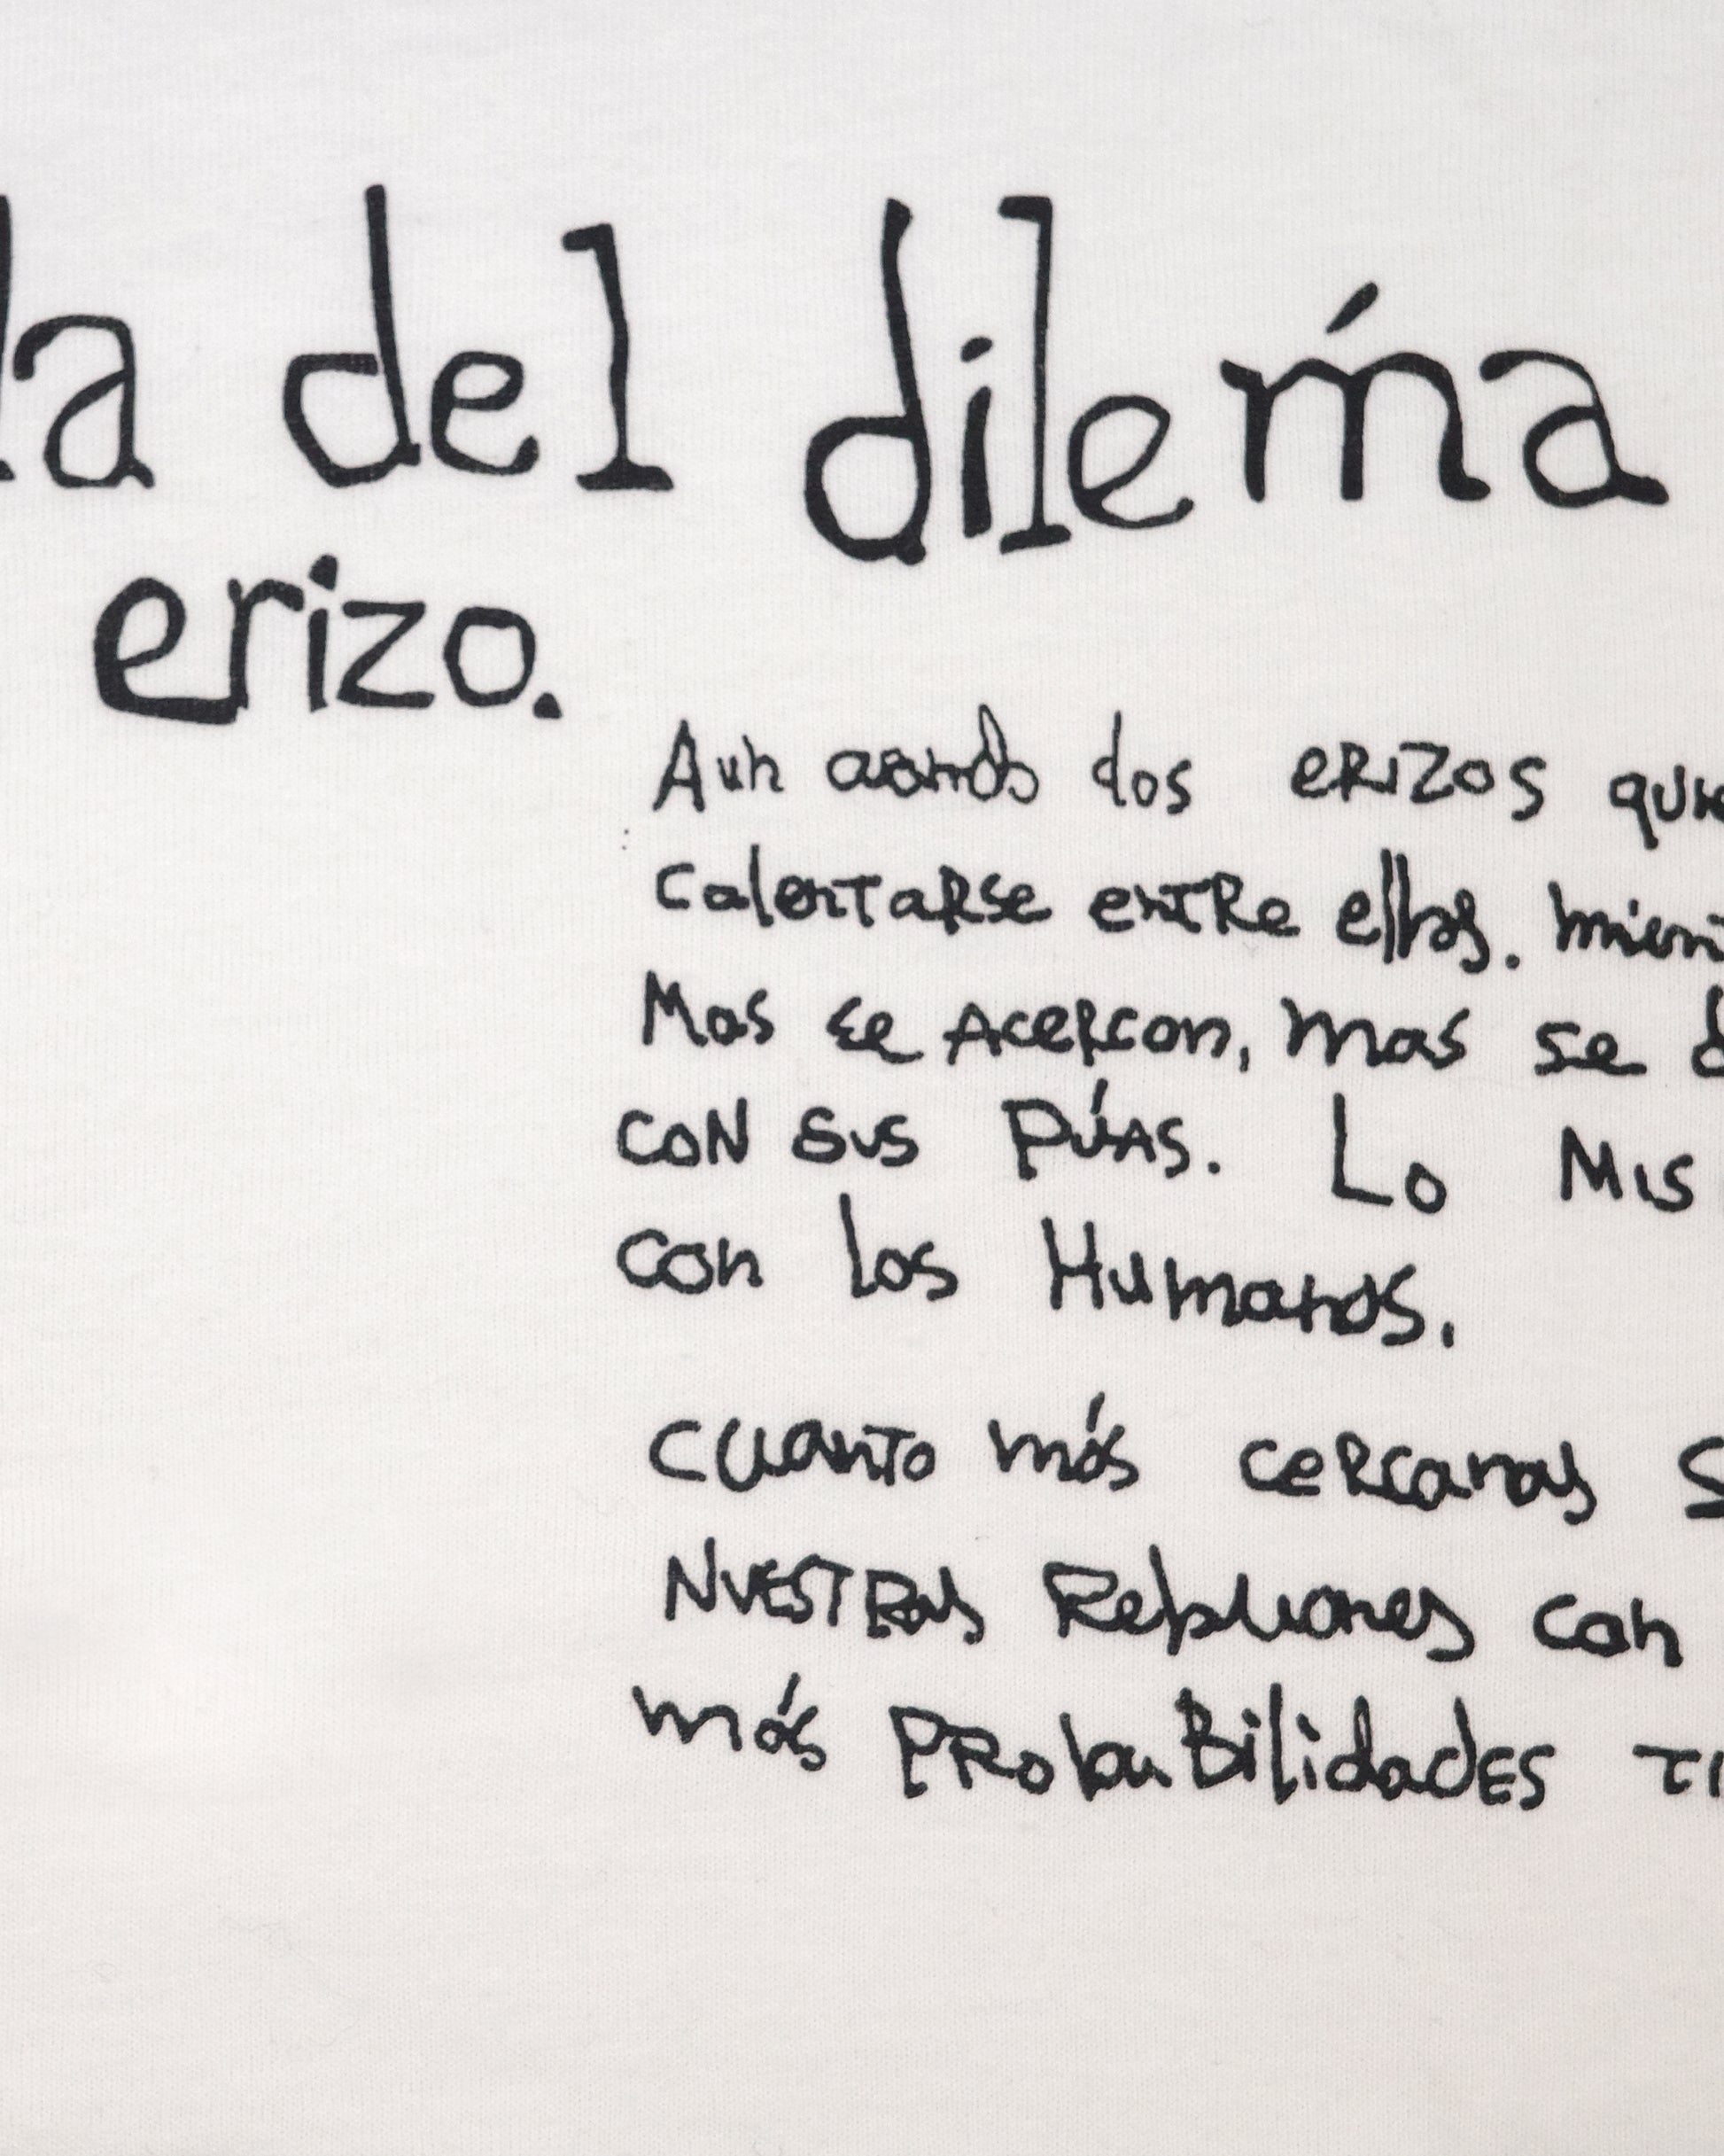 da del diléma
erizo.
Aun cuando dos erizos quie
calentarse entre ellos. mient
Mas se Acercan, mas se d
CON SUS PÚAS. Lo MIS
con los Humanos.
CUANTO más cercanas S
NUESTRAS Relaciones con
más PRobaBilidadES TI